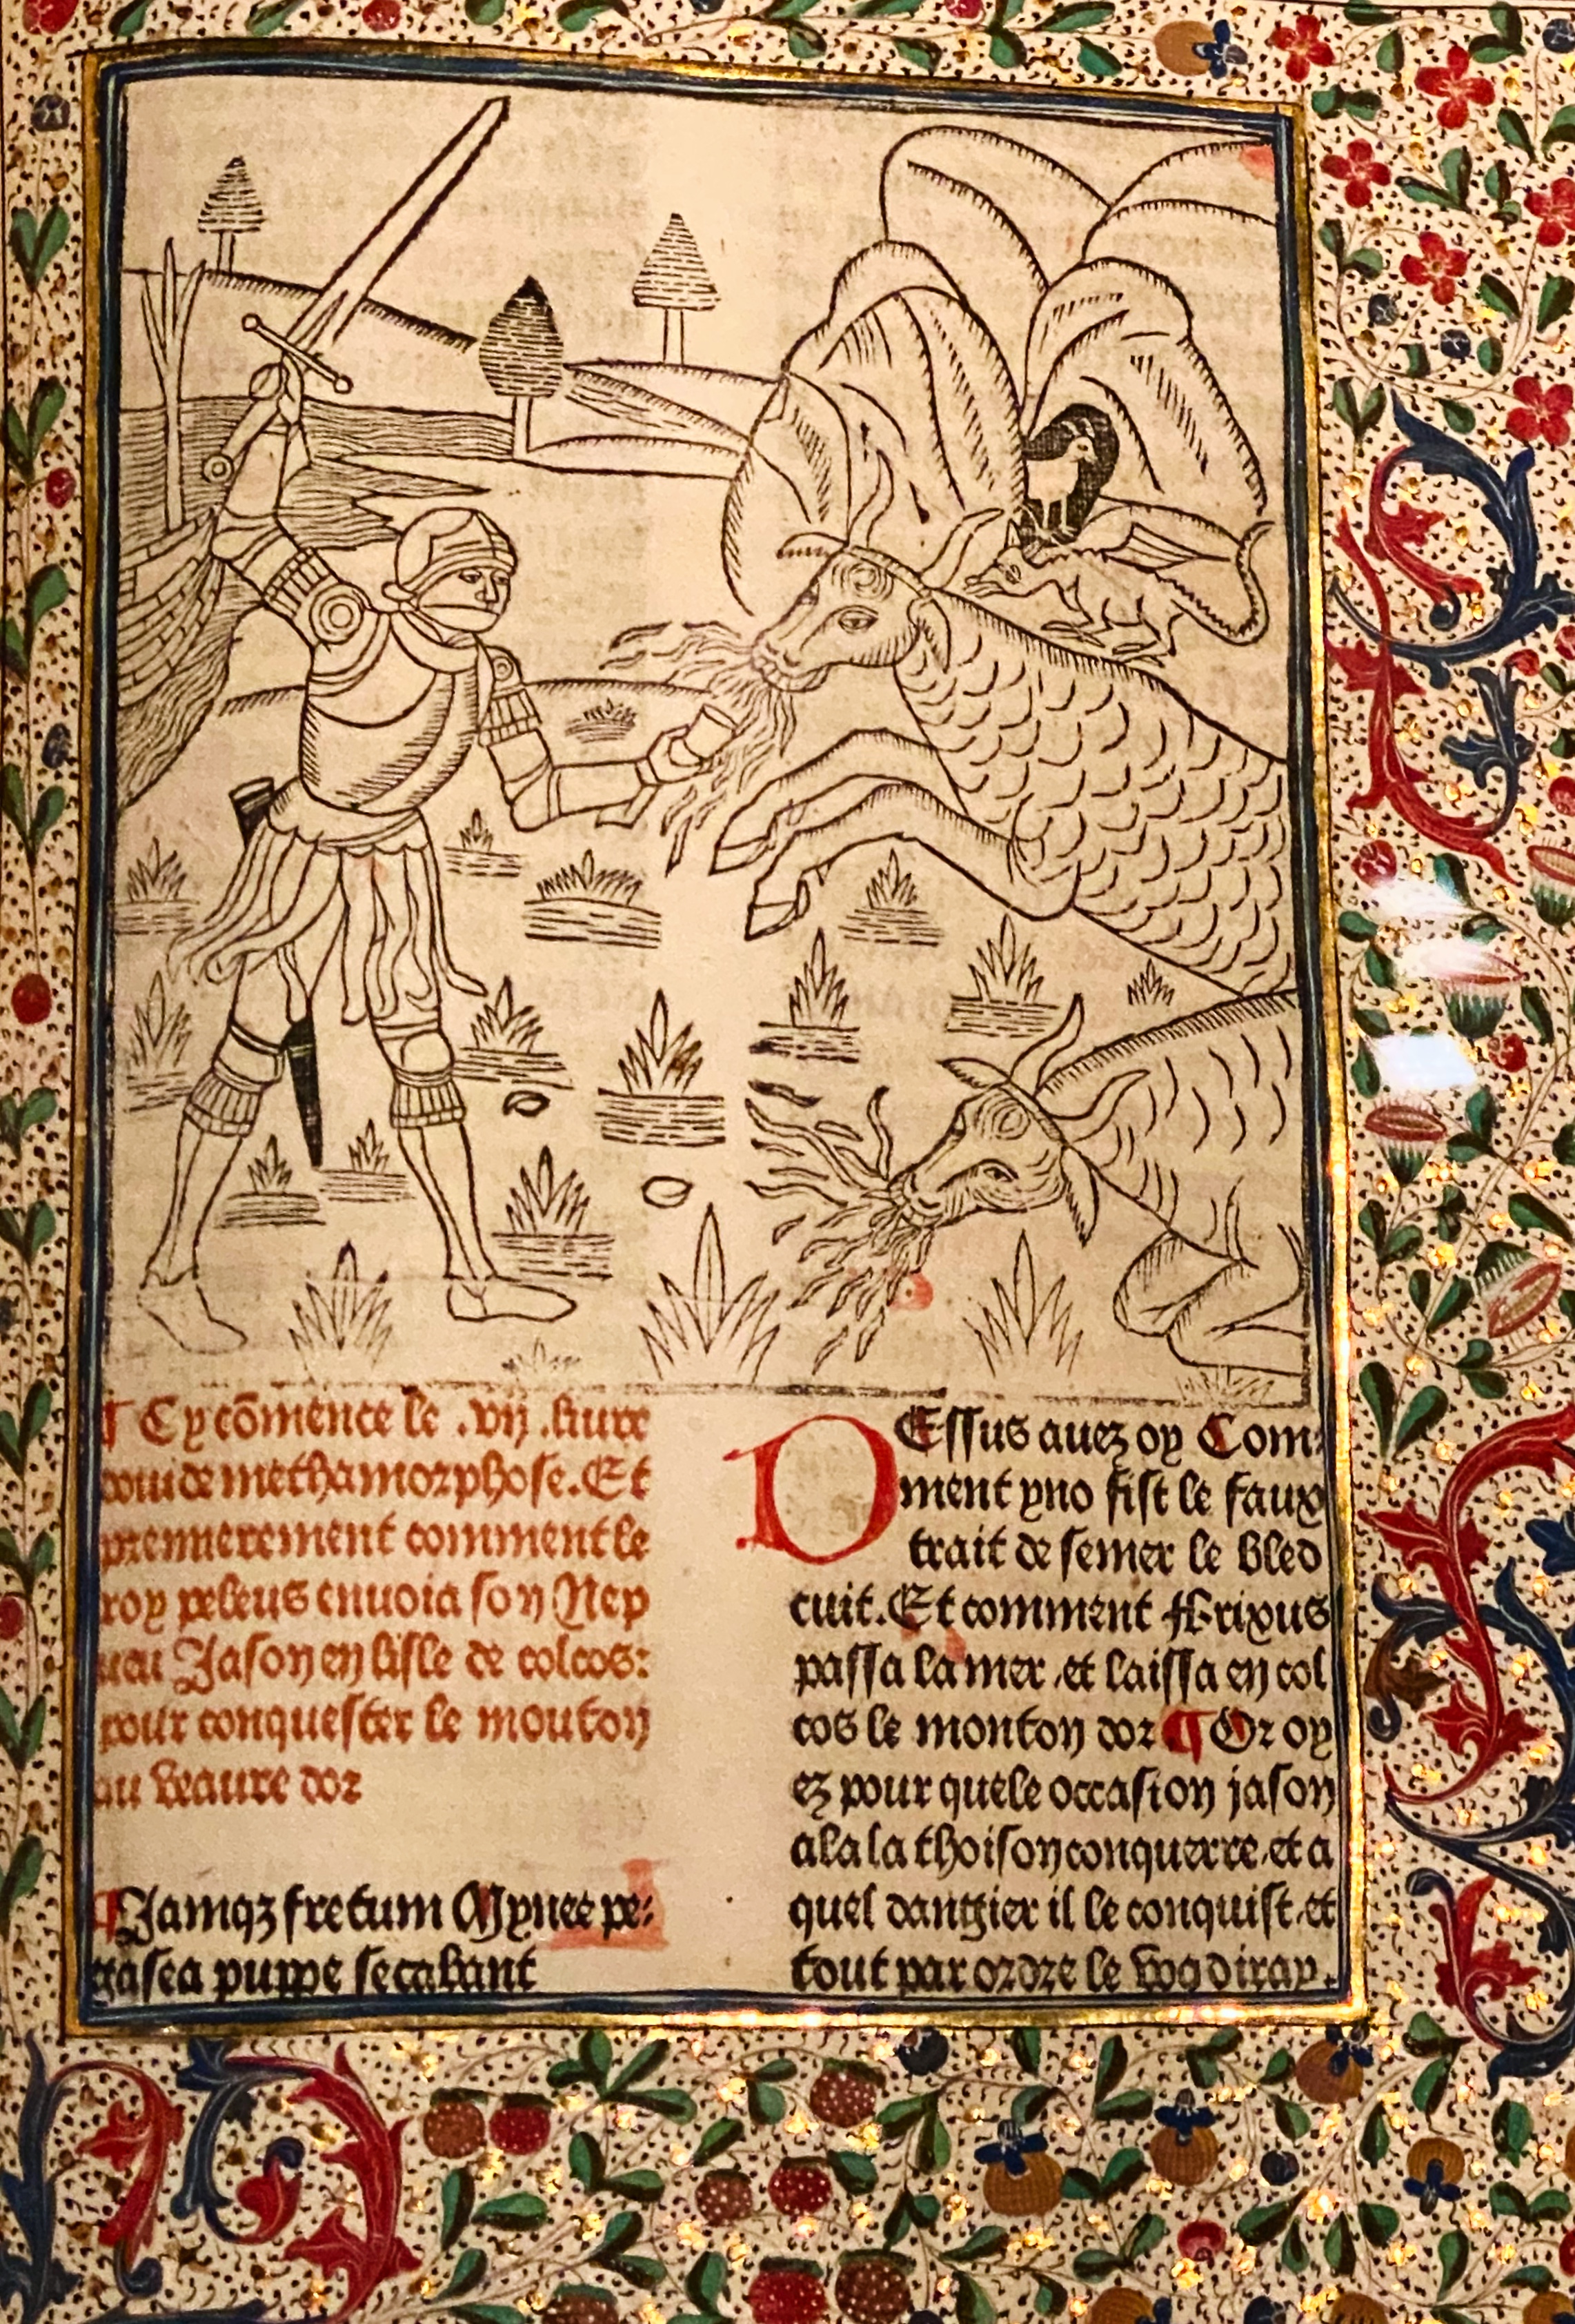 ¶ Cy cõmence le .vij. liure
ouide methamorphose. Et
premierement comment le
roy peleus enuoia son Nep
ueu Jason en lisle de colcos:
pour conquester le mouton
au veaure dor
¶ Jamqꝫ fretum Mynee pe:
gasea puppe secabant
DEssus auez oy Com:
ment yno fist le faux
trait de semer le bled
cuit. Et comment ffrixus
passa la mer. et laissa en col
cos le monton dor ¶ Or oy
ez pour quele occasion jason
ala la thoison conquerre. et a
quel dangier il le conquist. et
tout par ordre le vos diray.